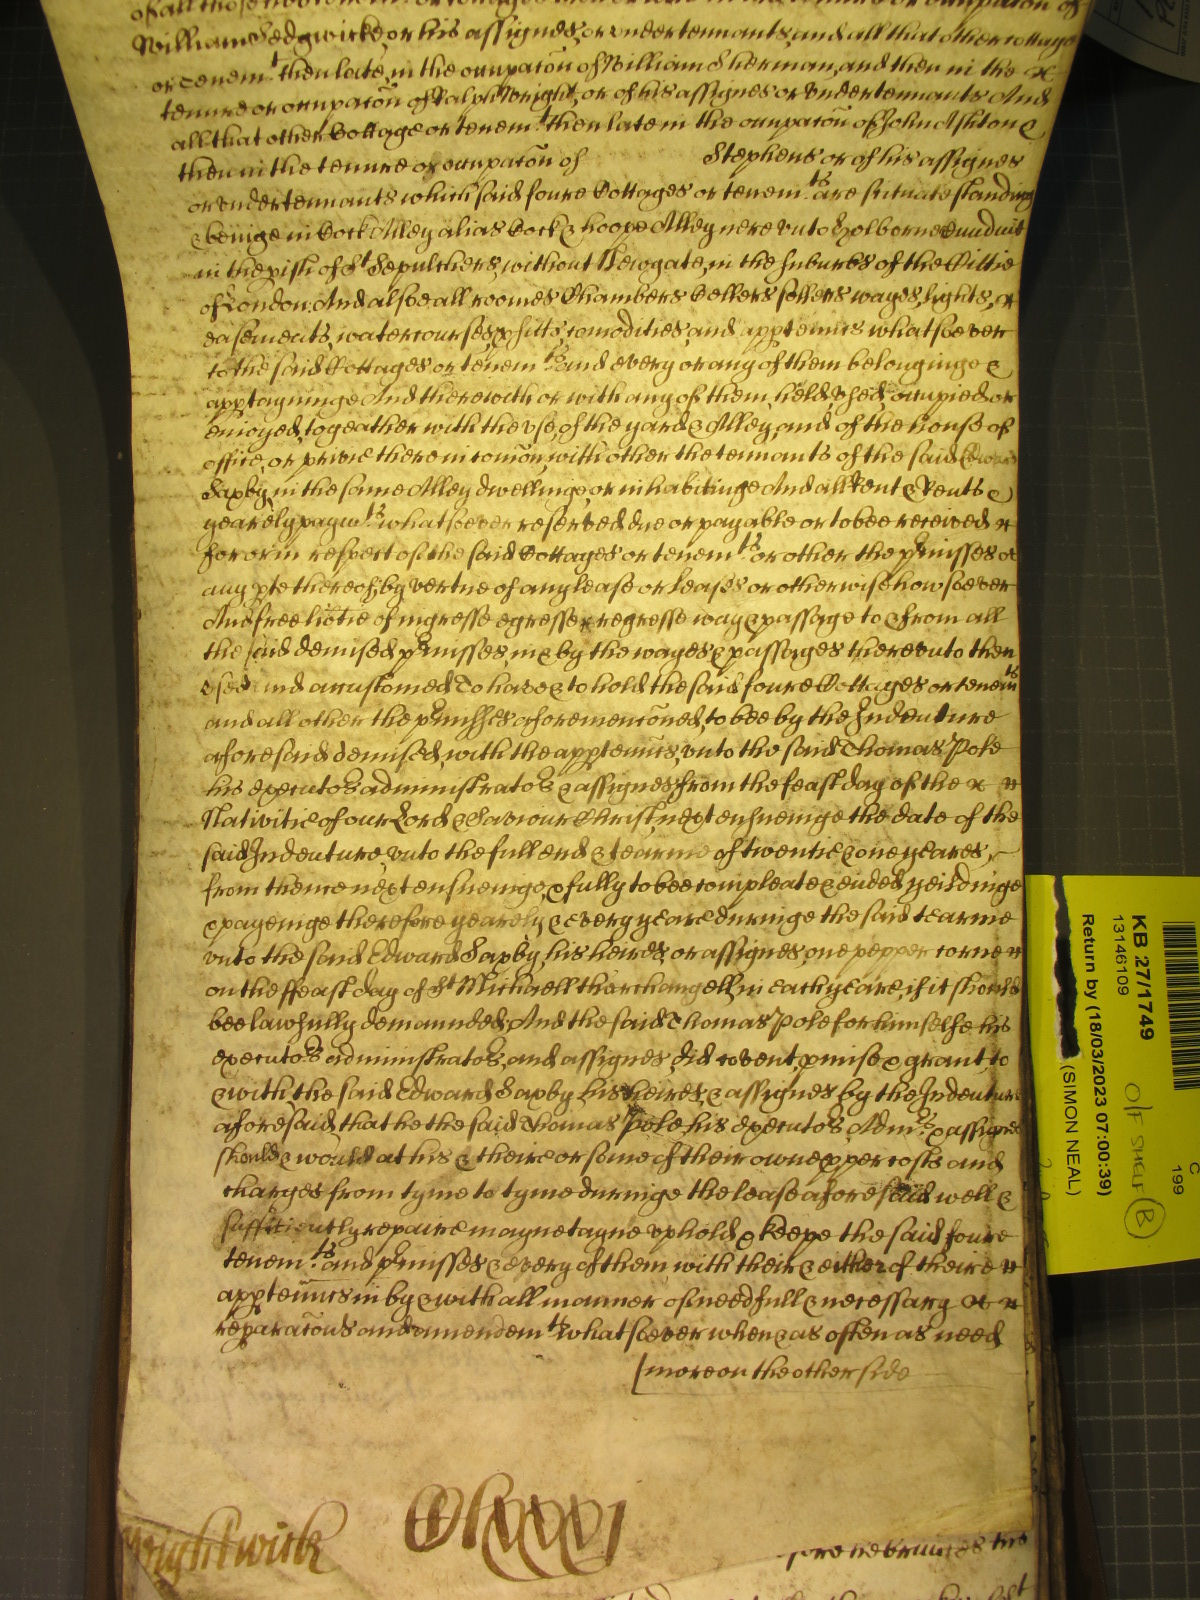 William Sedgwicke, or his assignes, or under tennants, and all that other cottage
or tenem.t then late, in the occupacōn of William Sherman, and then in the
tenure or occupacōn of Ralph Wright, or of his assignes or under tennants And
all that other Cottage or tenem.t then late in the occupacōn of John Ashton &
then in the tenure or occupacōn of Stephens or of his assignes
or under tennants which said foure Cottages or tenem.ts are scituate standing
& beinge in Cock Alley alias Cock & hoope Alley nere unto Holborne Cunduit
in the pish of St Sepulchers, without Newgate, in the suburbs of the Cittie
of London: And alsoe all roomes Chambers Cellers sollers wayes, lights,
easements, watercourses, pfitts, comodities, and apptennc's whatsoever
to the said Cottages or tenem.ts and every or any of them belonginge &
apptayninge And therewith or with any of them, held used, occupied or
enioyed, togeather with the use, of the yard & Alley, and of the house of
office, or privie there in comōn, with other the tennants of the said Edward
Saxby, in the same Alley dwellinge, or inhabitinge And all Rent & Rents &
yearely paym.ts whatsoever reserved due or payable or to bee received
for or in respect of the said Cottages or tenem.ts or other the pmisses or
any pte thereof, by vertue of any lease or leases or otherwise howsoever
And free libtie of ingresse egresse & regresse way & passage to & from all
the said demised pmisses, in & by the wayes & passages thereunto then
used and accustomed To have & to hold the said foure Cottages or tenemts
and all other the pmisses aforemencōned, to bee by the Indenture
aforesaid demised, with the apptennc's, unto the said Thomas Pole
his executors administrators & assignes, from the feast day of the
Nativitie of our Lord & Saviour Christ, next ensueinge the date of the
said Indenture, unto the full end & tearme of twentie & one yeares,
from thence next ensueinge, & fully to bee compleate & ended, yeildinge
& payeinge therefore yearely & every yeare duringe the said tearme
unto the said Edward Saxby, his heires, or assignes, one pepper corne
on the ffeast day of St Michaell tharchangell, in each yeare, if it should
bee lawfully demaunded; And the said Thomas Pole for himselfe his
executors administrators, and assignes, did covent, pmise & grant, to
& with, the said Edward Saxby, his heires, & assignes by the Indenture
aforesaid, that he the said Thomas Pole his executors, Adm.rs & assignes
should & would at his & theire or some of their owne pper costs and
charges from tyme to tyme duringe the lease aforesaid well &
sufficiently repaire mayntayne uphold & keepe the said foure
tenem.ts and pmisses & every of them with their & either of theire
apptennc's in by & with all manner of needfull & necessary
reparacōns and amendem.ts whatsoever when & as often as need
more on the other side
Wightwick
KB 27/1749
13146109
Return by (18/03/2023 07:00:39)
(SIMON NEAL)
O/F SHELF B
C
199